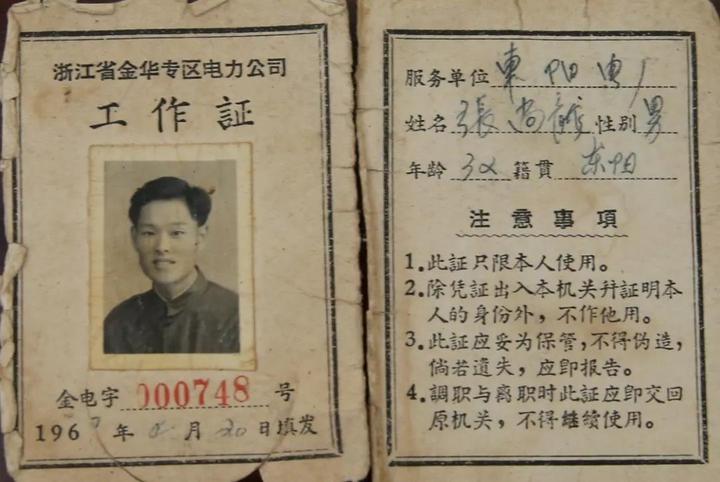 浙江省金华专区电力公司
工作証
金电字 000748 号
196 年 月 20 日填发
服务单位 東阳电厂
姓名 張尚 性别 男
年龄 32 籍贯 东阳
注意事項
1.此証只限本人使用。
2.除凭証出入本机关幷証明本
人的身份外，不作他用。
3.此証应妥为保管，不得伪造，
倘若遺失，应卽报告。
4.調职与离职时此証应卽交回
原机关，不得继續使用。